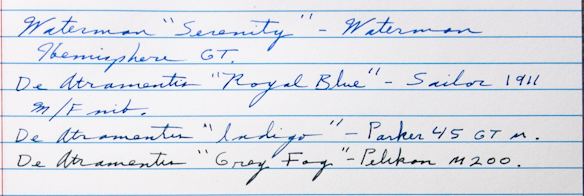 Waterman "Serenity" - Waterman
Hemisphere GT.
De Atramentis "Royal Blue" - Sailor 1911
M/F nib.
De Atramentis "Indigo" - Parker 45 GT M.
De Atramentis "Grey Fog" - Pelikan M200.